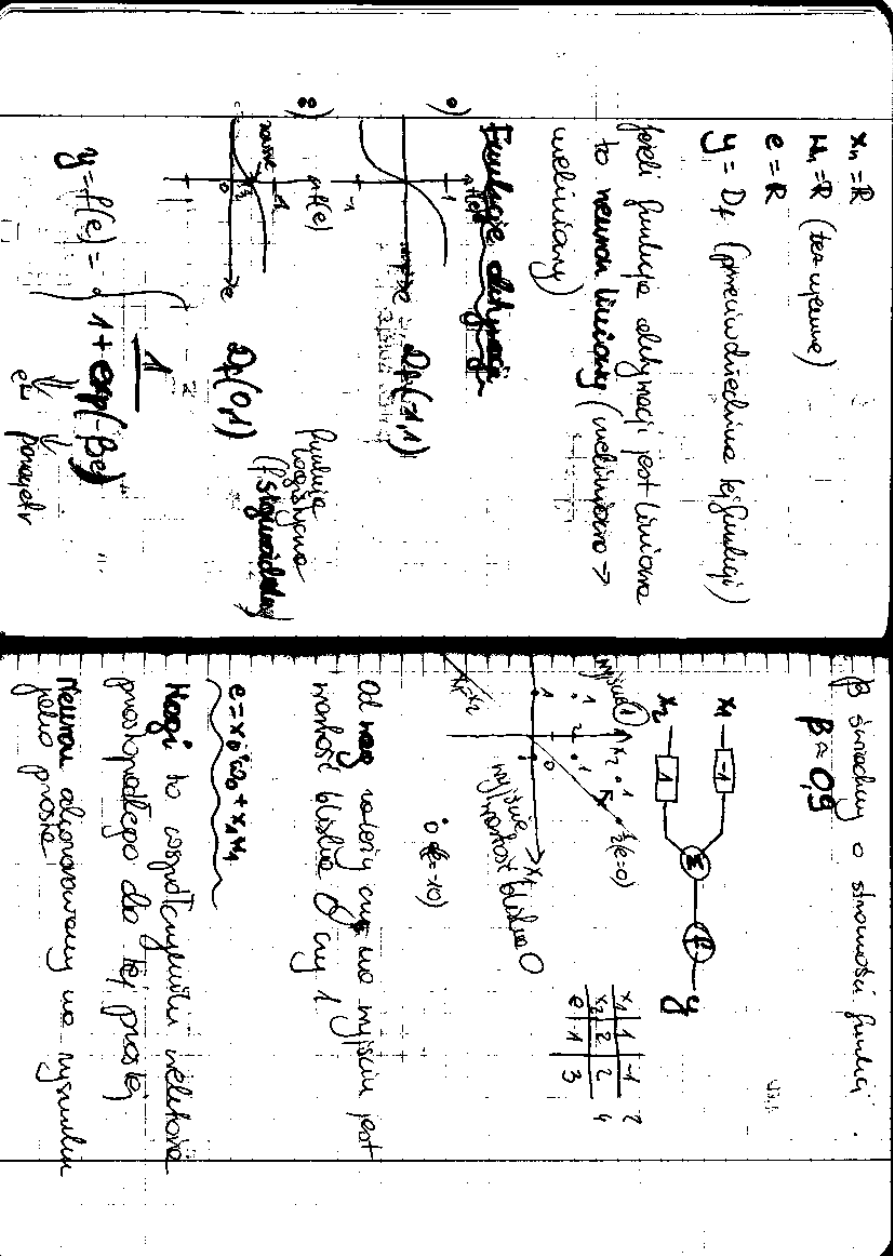 xn = R
wn = R (też ujemne)
e = R
y = Df (przeciwdziedzina tej funkcji)
jeżeli funkcja aktywacji jest liniowa
to neuron liniowy (nieliniowa →
nieliniowy)
Funkcje aktywacji
1
f(e)
-1
Df (-1,1)
f(e)
1
0
e
Df (0,1)
funkcja
logistyczna
(f. sigmoidalna)
y = f(e) = 1 / 1 + exp(-βe)
parametr
β świadczy o stromości funkcji
β ≈ 0,9
x1
-1
x2
1
Σ
f
y
x1 | 1 | -1 | 2
x2 | 2 | 2 | 4
e | -1 | 3
wyjście 1
x2
1/2 (e=0)
x1
x1=x2
wyjście →
wartość bliska 0
0 (e=-10)
Od wag zależy czy na wyjściu jest
wartość bliska 0 czy 1
e = x0 w0 + x1 w1
Wagi to współczynniki wektora
prostopadłego do tej prostej
Neuron odwzorowany na rysunku
jako prosta